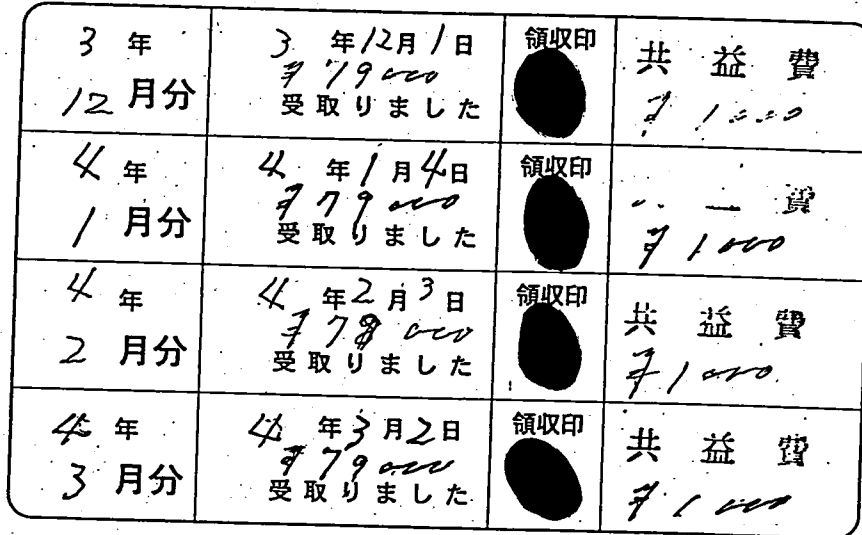 3 年
12 月分
3 年 12月 1日
¥79000
受取りました
領収印
共益費
¥1000
4 年
1 月分
4 年 1月 4日
¥79000
受取りました
領収印
費
¥1000
4 年
2 月分
4 年 2月 3日
000
受取りました
領収印
共益費
¥1000
4 年
3 月分
4 年 3月 2日
¥79000
受取りました
領収印
共益費
¥1000